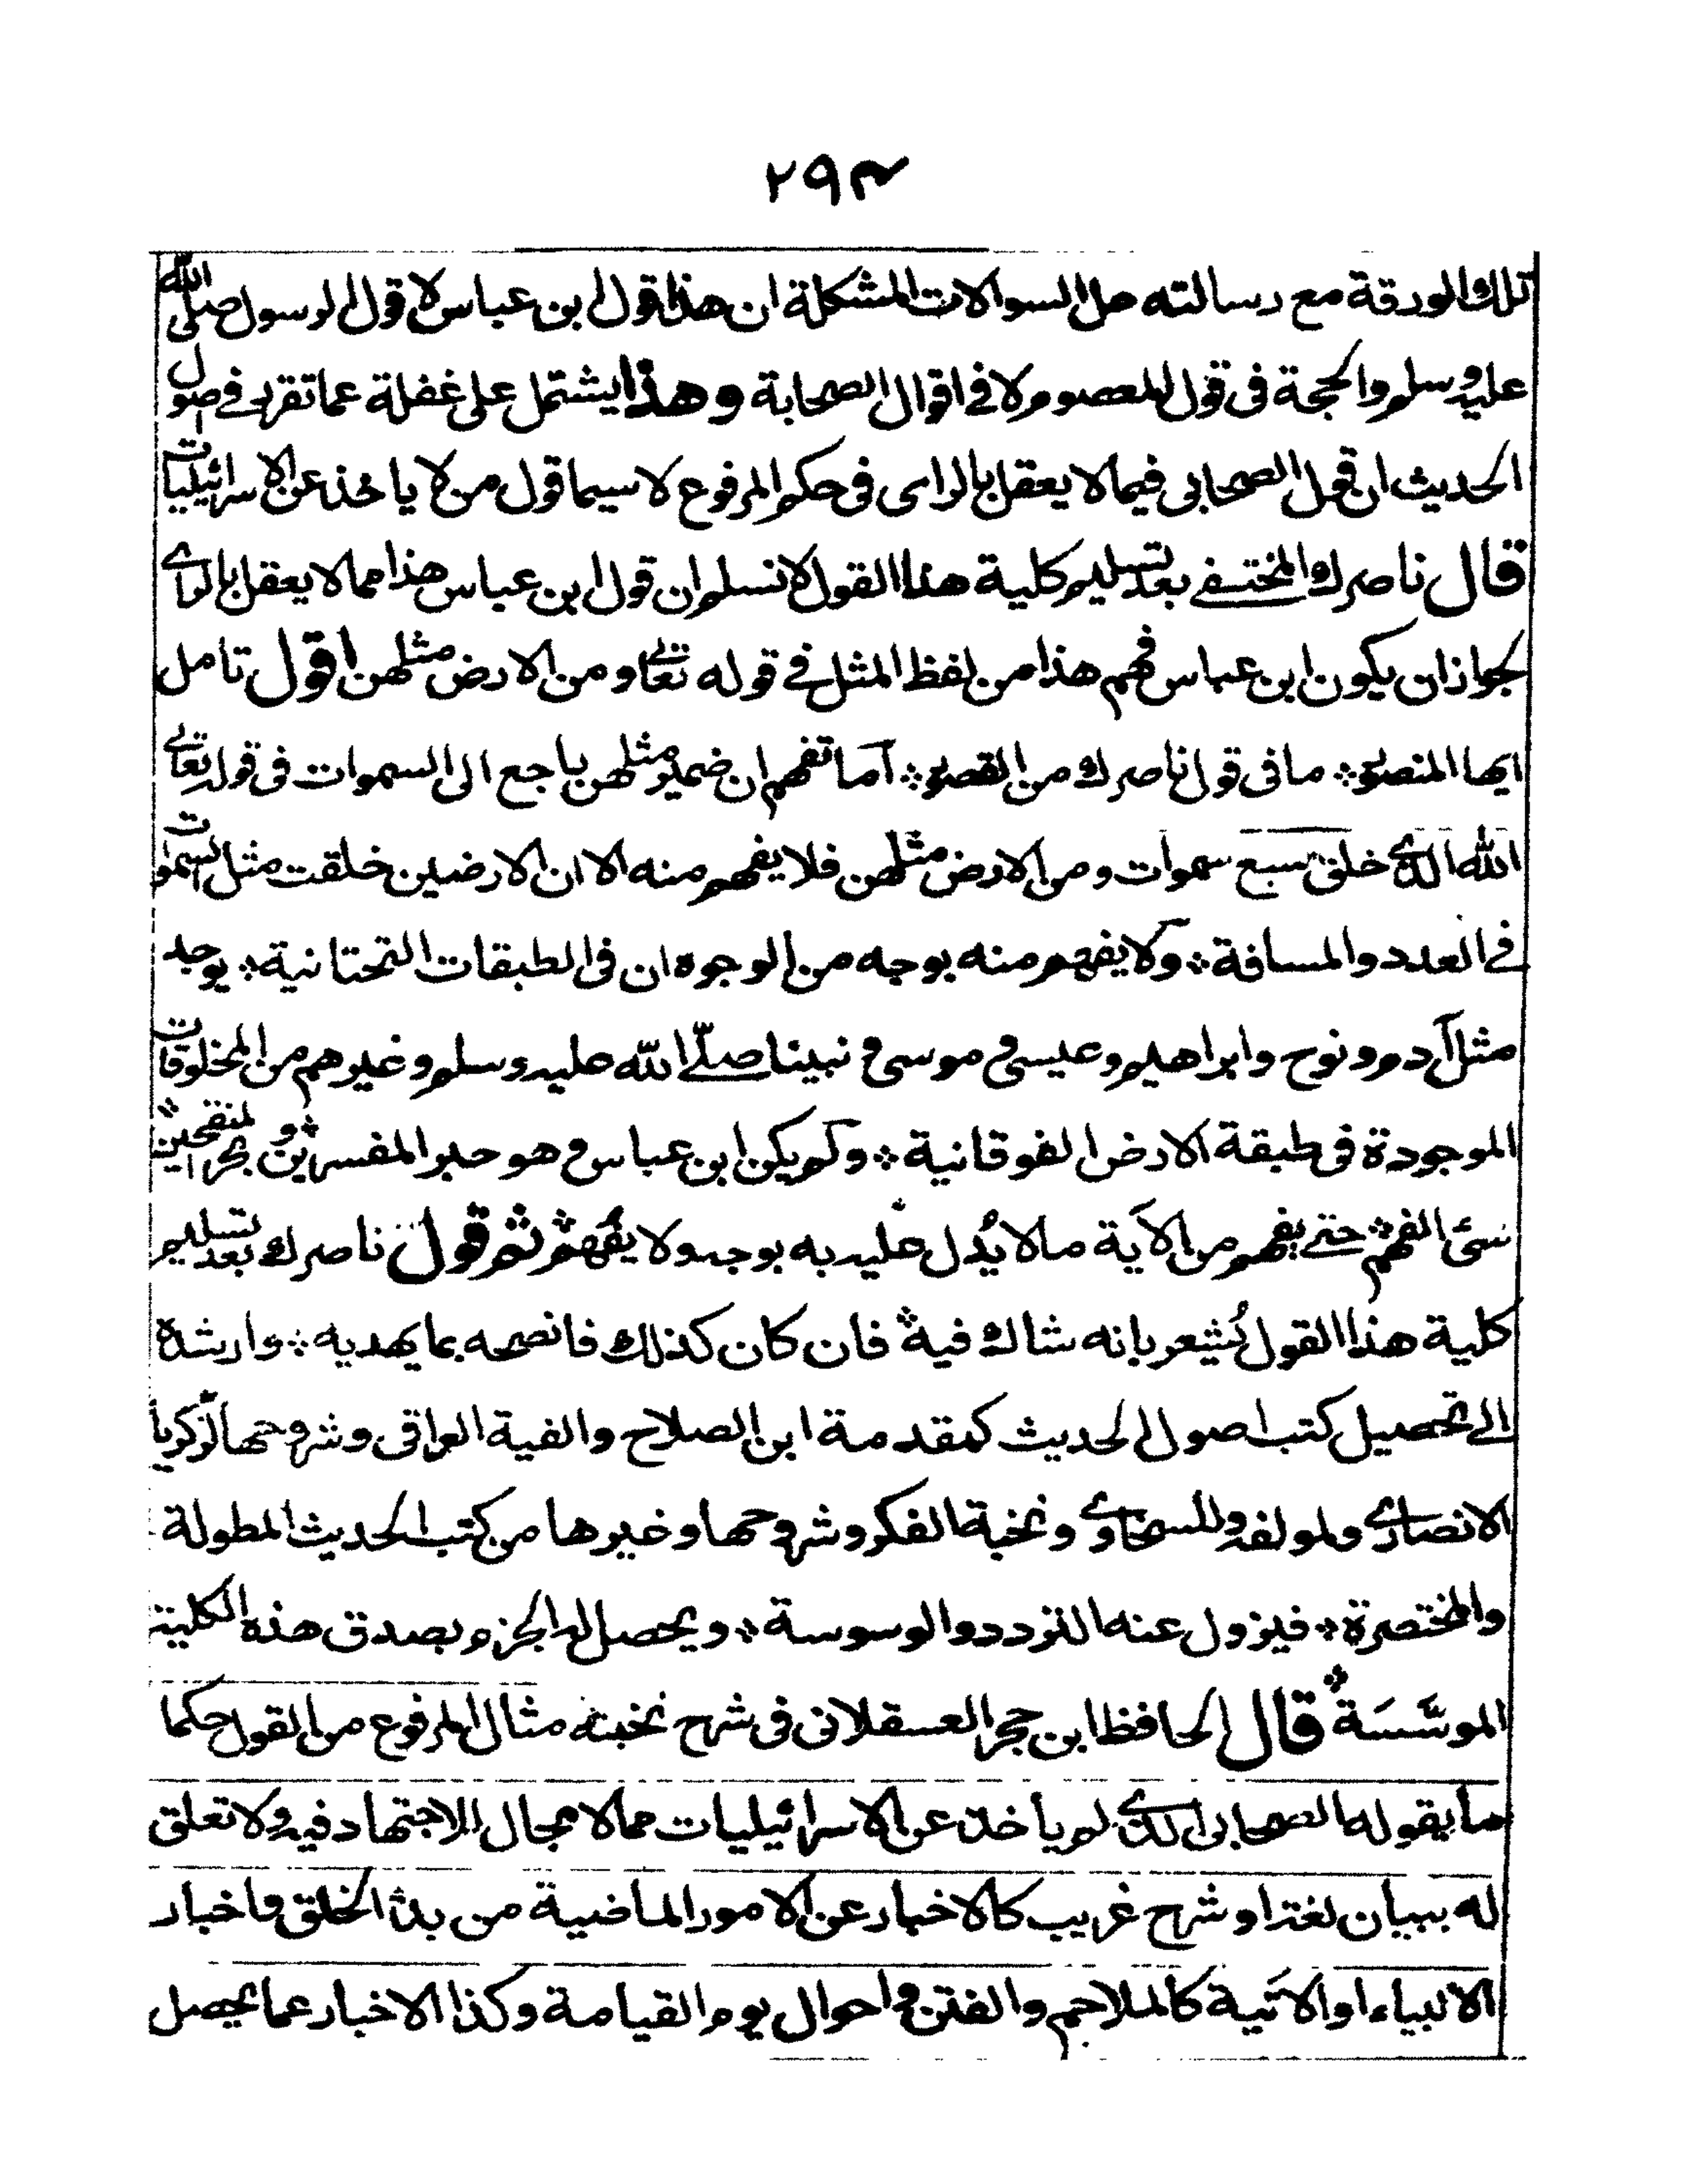 ٢٩٤
تلك الورقة مع رسالته حل السوالات المشكلة ان هذا قول ابن عباس لا قول الرسول صلى الله
عليه وسلم والحجة فى قول المعصوم لا في اقوال الصحابة وهذا يشتمل على غفلة عما تقرر في اصول
الحديث ان قول الصحابى فيما لا يعقل بالراى فى حكم المرفوع لا سيما قول من لا ياخذ عن الاسرائيليات
قال ناصرك المختفے بعد تسليم كلية هذا القول لا نسلم ان قول ابن عباس هذا مما لا يعقل بالراے
لجواز ان يكون ابن عباس فهم هذا من لفظ المثل في قوله تعالى ومن الارض مثلهن اقول تامل
ايها المنصور ما فى قول ناصرك من القصور آما تفهم ان ضمير مثلهن راجع الى السموات فى قوله تعالے
الله الذي خلق سبع سموات ومن الارض مثلهن فلا يفهم منه الا ان الارضين خلقت مثل السموات
في العدد والمسافة ولا يفهم منه بوجه من الوجوه ان فى الطبقات التحتانية يوجد
مثل آدم ونوح وابراهيم وعيسى وموسى ونبينا صلّے الله عليه وسلم وغيرهم من المخلوقات
الموجودة فى طبقة الارض الفوقانية ولم يكن ابن عباس وهو حبر المفسرين وبحر المنقحين
سئ الفهم حتے يفهم من الآية ما لا يدل عليه به بوجه ولا يفهم ثم قول ناصرك بعد تسليم
كلية هذا القول يُشعر بانه شاك فيه فان كان كذلك فانصحه بما يهديه وارشده
الى تحصيل كتب اصول الحديث كمقدمة ابن الصلاح والفية العراقى وشروحها لزكريا
الانصارے ولمولفه وللسخاوے ونخبة الفكر وشروحها وغيرها من كتب الحديث المطولة
والمختصرة فيزول عنه التردد والوسوسة ويحصل له الجزم بصدق هذه الكلية
الموسَّسَة قال الحافظ ابن حجر العسقلانى فى شرح نخبته مثال المرفوع من القول حكما
ما يقوله الصحابى الذے لم يأخذ عن الاسرائيليات مما لا مجال للاجتهاد فيه ولا تعلق
له ببيان لغة او شرح غريب كالاخبار عن الامور الماضية من بدأ الخلق واخبار
الانبياء او الآتية كالملاحم والفتن واحوال يوم القيامة وكذا الاخبار عما يحصل